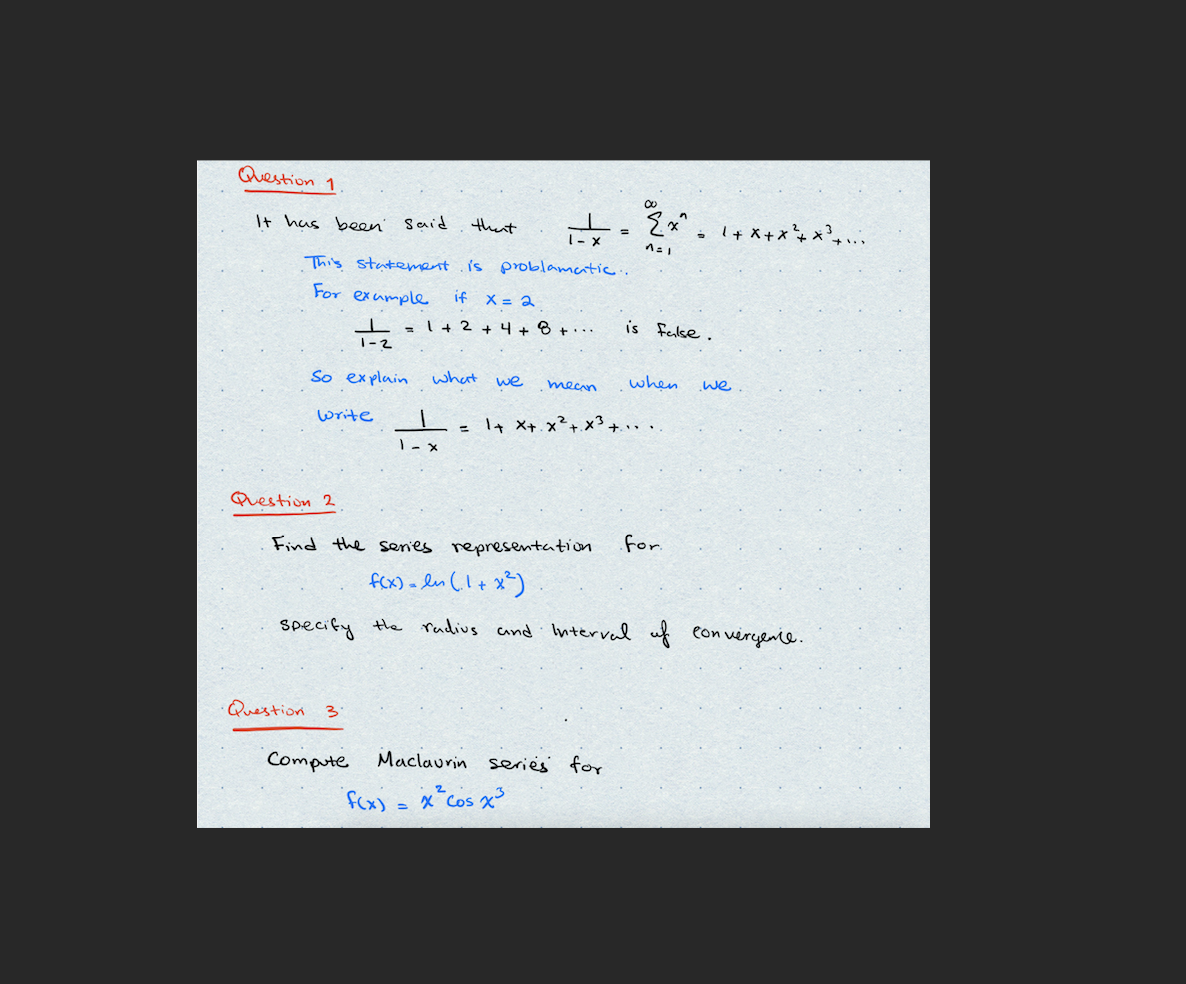 Question 1
It has been said that 1/(1-x) = ∑_{n=1}^{∞} x^n = 1 + x + x² + x³ + ...
This statement is problamatic..
For example if x = 2
1/(1-2) = 1 + 2 + 4 + 8 + ... is false.
So explain what we mean when we
write 1/(1-x) = 1 + x + x² + x³ + ...
Question 2
Find the series representation for
f(x) = ln(1 + x²)
specify the radius and interval of convergence.
Question 3
Compute Maclaurin series for
f(x) = x² cos x³